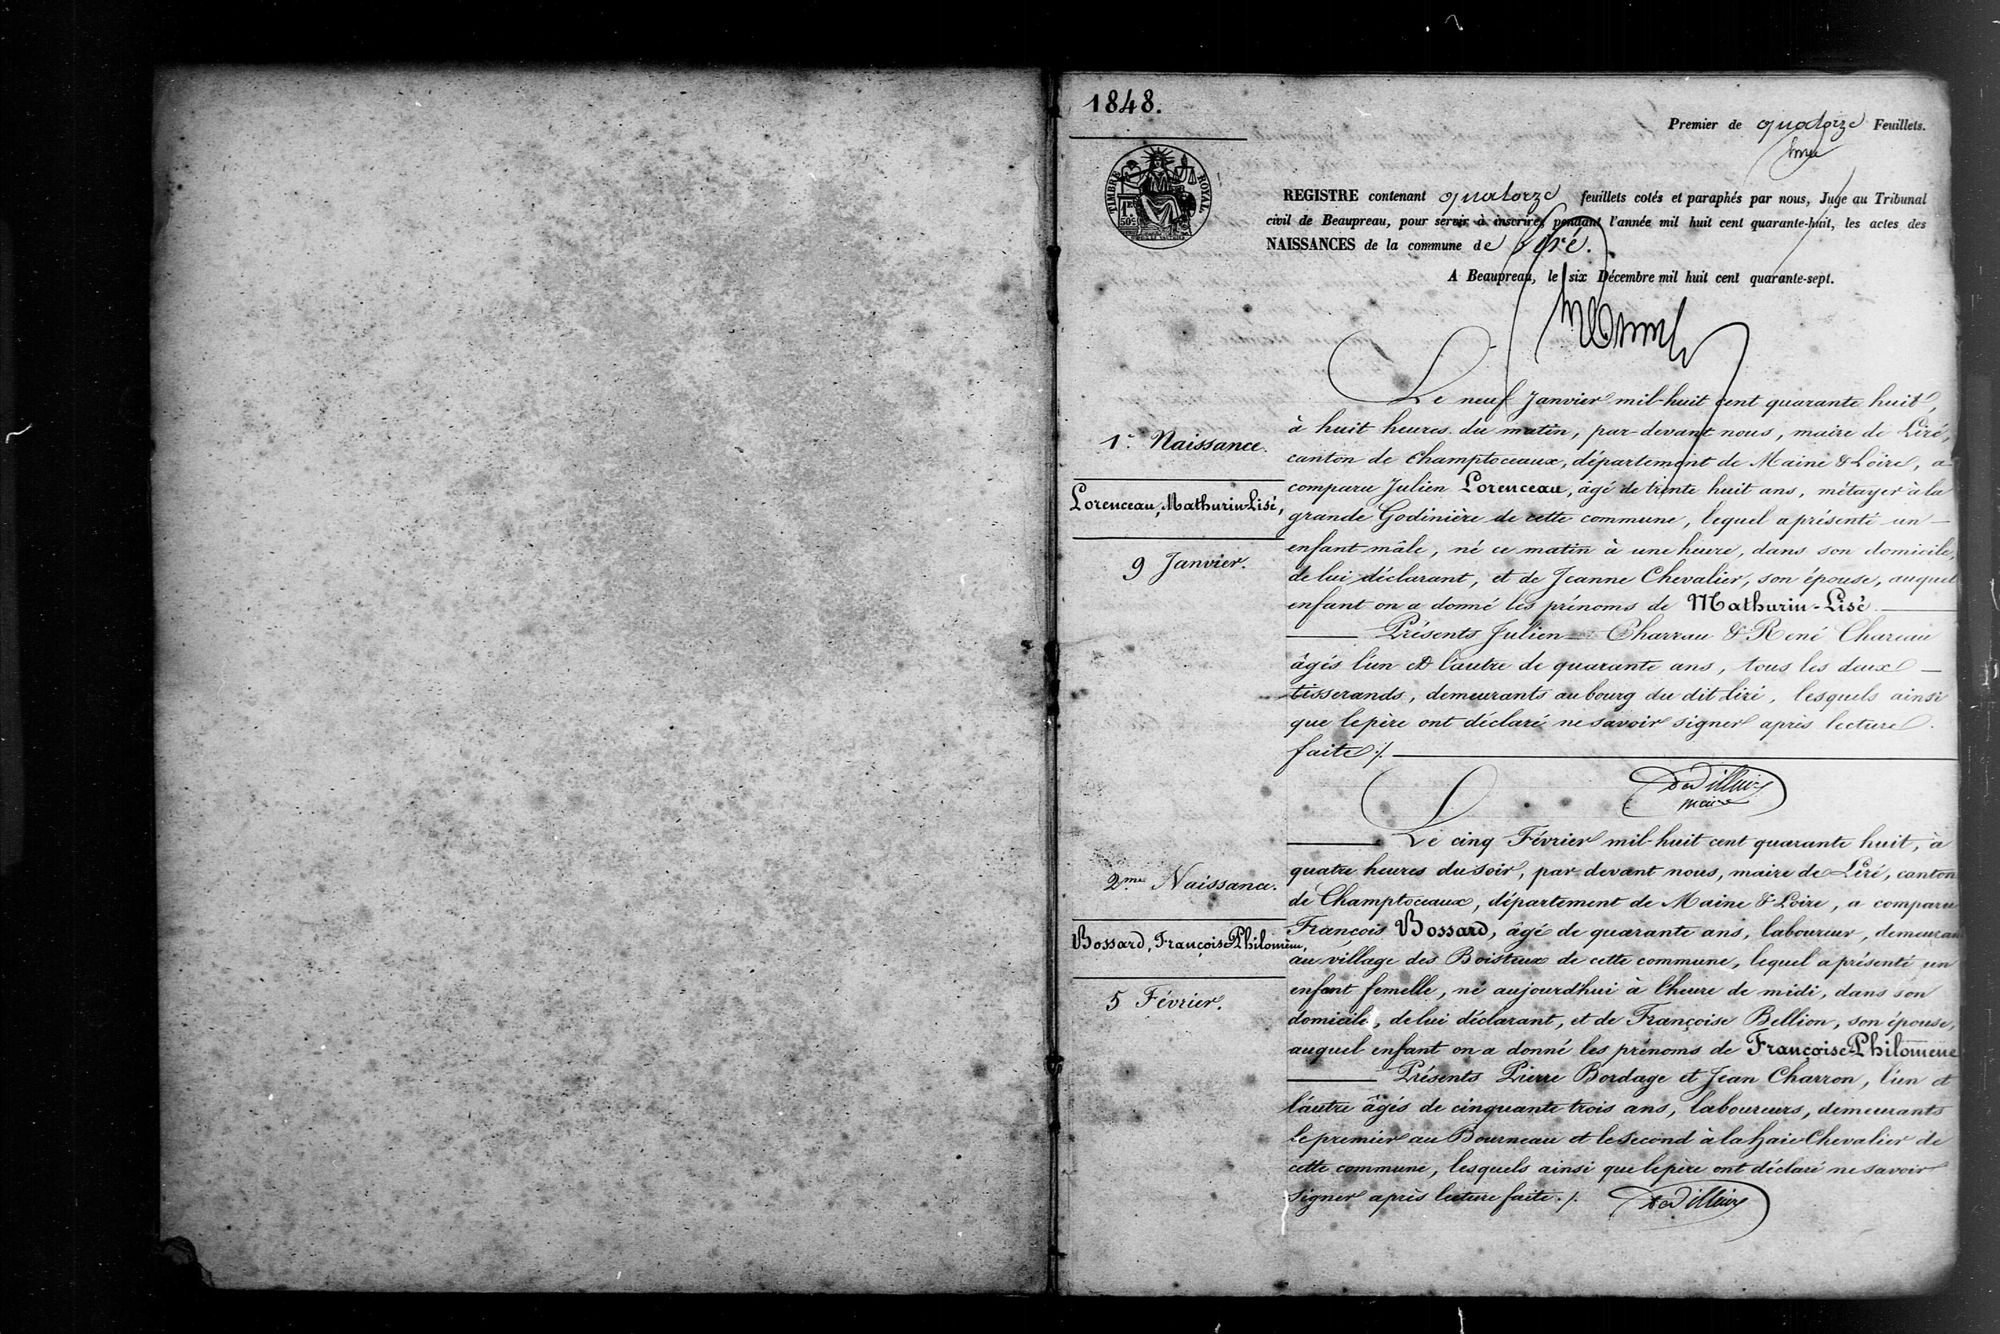 1848.
Premier de quatorze Feuillets.
TIMBRE ROYAL
REGISTRE contenant quatorze feuillets cotés et paraphés par nous, Juge au Tribunal
civil de Beaupreau, pour servir à inscrire, pendant l'année mil huit cent quarante-huit, les actes des
NAISSANCES de la commune de Liré.
A Beaupreau, le six Décembre mil huit cent quarante-sept.
1re Naissance.
Lorenceau, Mathurin-Lisé,
9 Janvier.
Le neuf Janvier mil-huit cent quarante huit,
à huit heures du matin, par-devant nous, maire de Liré,
canton de Champtoceaux, département de Maine & Loire, a
comparu Julien Lorenceau, âgé de trente huit ans, métayer à la
grande Godinière de cette commune, lequel a présenté un
enfant mâle, né ce matin à une heure, dans son domicile,
de lui déclarant, et de Jeanne Chevalier, son épouse, auquel
enfant on a donné les prénoms de Mathurin-Lisé.
Présents Julien Charrau & René Chareau
âgés l'un et l'autre de quarante ans, tous les deux
tisserands, demeurants au bourg du dit Liré, lesquels ainsi
que le père ont déclaré ne savoir signer après lecture
faite ./.
maire
2me Naissance.
Bossard, Françoise-Philomène,
5 Février.
Le cinq Février mil-huit cent quarante huit, à
quatre heures du soir, par devant nous, maire de Liré, canton
de Champtoceaux, département de Maine & Loire, a comparu
François Bossard, âgé de quarante ans, laboureur, demeurant
au village des Boisteux de cette commune, lequel a présenté un
enfant femelle, né aujourdhui à l'heure de midi, dans son
domicile, de lui déclarant, et de Françoise Bellion, son épouse,
auquel enfant on a donné les prénoms de Françoise-Philomène
Présents Pierre Bordage et Jean Charron, l'un et
l'autre âgés de cinquante trois ans, laboureurs, demeurants
le premier au Bourneau et le second à la haie Chevalier de
cette commune, lesquels ainsi que le père ont déclaré ne savoir
signer après lecture faite ./.